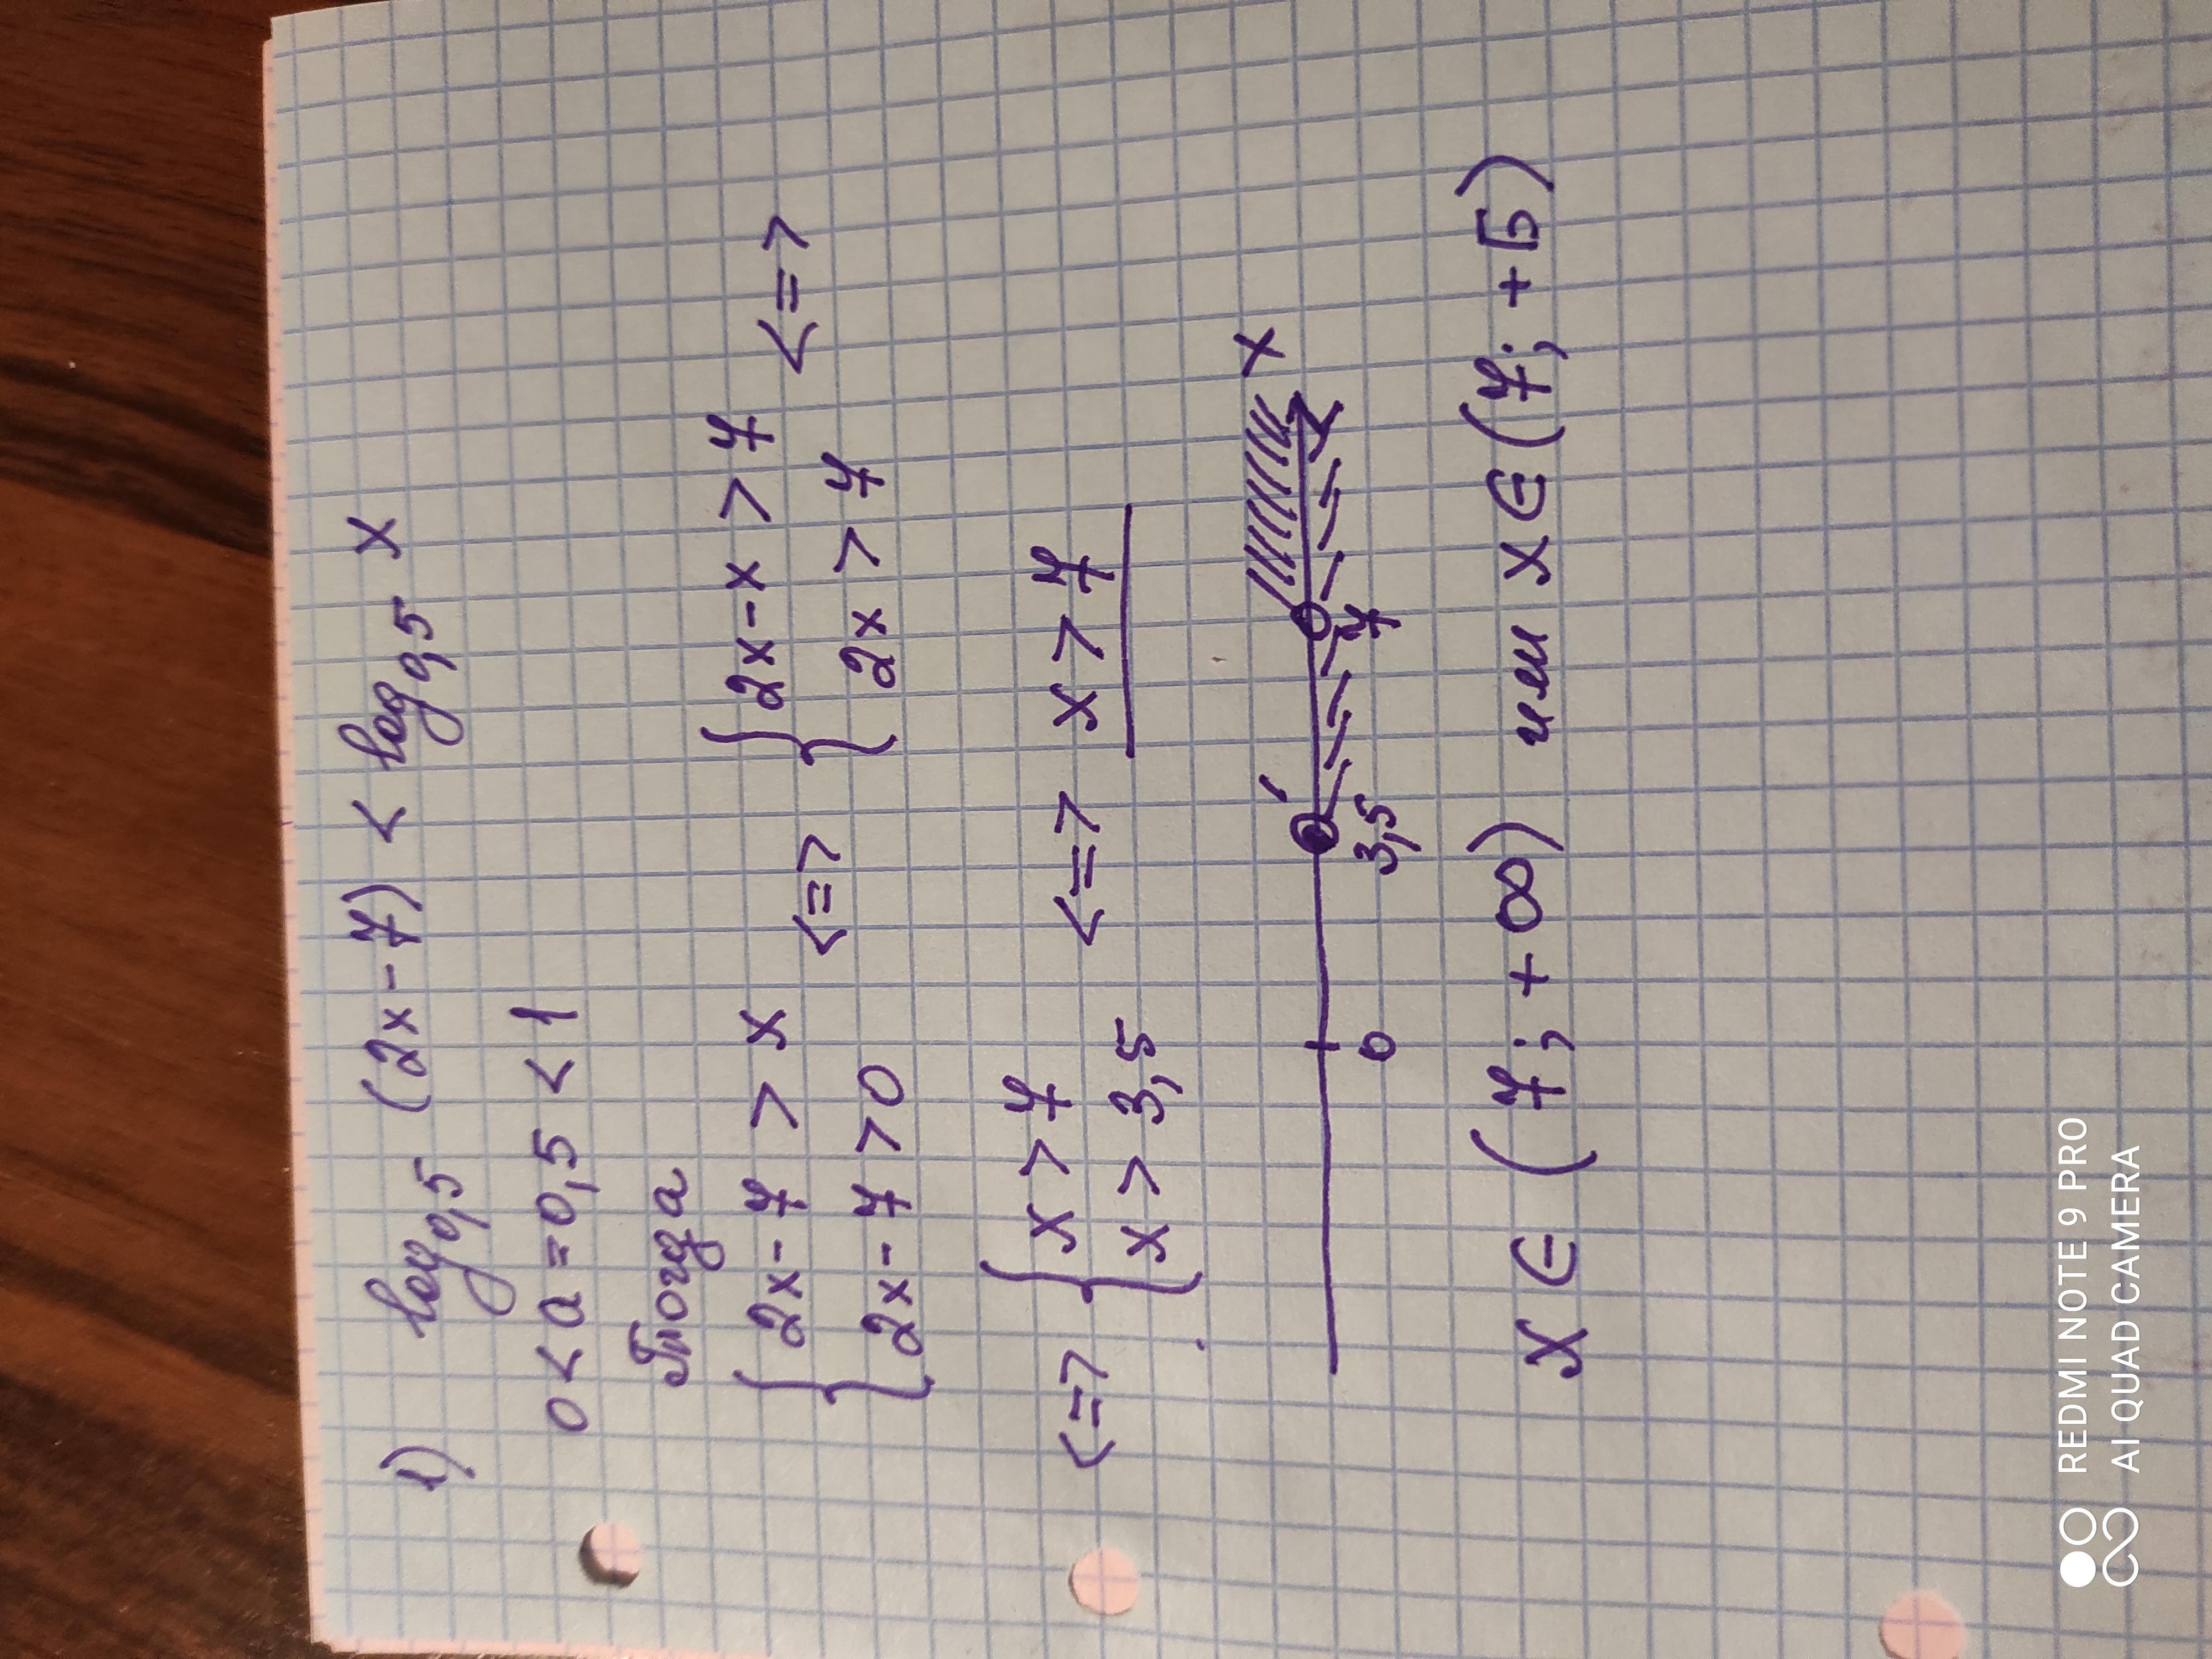 1) log₀,₅ (2x-7) < log₀,₅ x
0 < a = 0,5 < 1
Тогда
{ 2x-7 > x <=> { 2x-x > 7 <=>
2x-7 > 0 2x > 7
<=> { x > 7 <=> x > 7
x > 3,5
x
0 3,5 7
x ∈ (7; +∞) или x ∈ (7; +Б)
REDMI NOTE 9 PRO
AI QUAD CAMERA